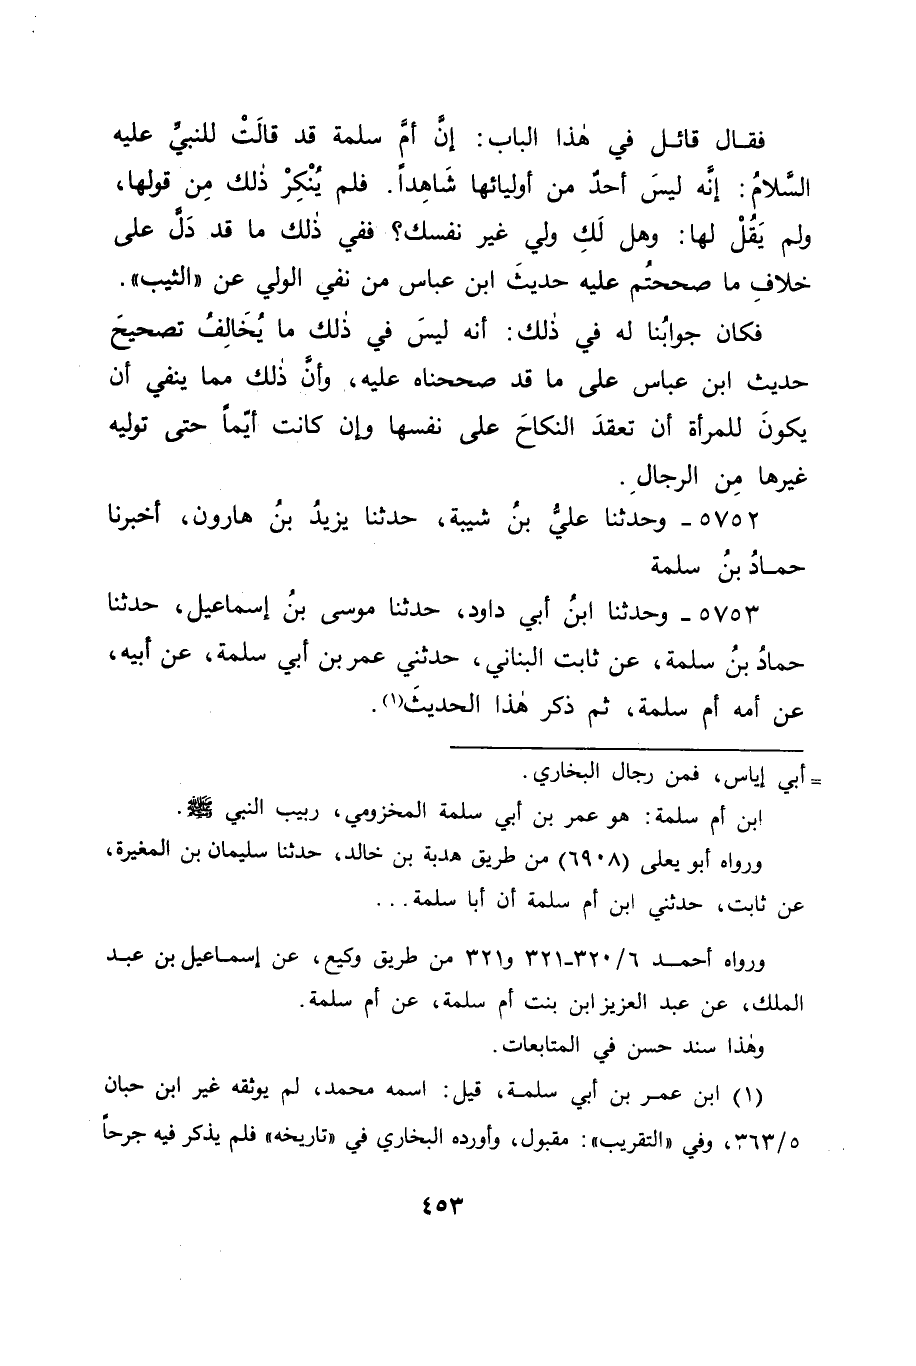 فقـال قائـل في هٰذا الباب: إنَّ أمَّ سلمة قد قالَتْ للنبيِّ عليه
السَّلامُ: إنَّه ليسَ أحدٌ من أوليائها شَاهِداً. فلم يُنْكِرْ ذلك مِن قولها،
ولم يَقُلْ لها: وهل لَكِ ولي غير نفسك؟ ففي ذٰلك ما قد دَلَّ على
خلافِ ما صححتُم عليه حديثَ ابن عباس من نفي الولي عن «الثيب».
فكان جوابُنا له في ذٰلك: أنه ليسَ في ذٰلك ما يُخَالِفُ تصحيحَ
حديث ابن عباس على ما قد صححناه عليه، وأنَّ ذٰلك مما ينفي أن
يكونَ للمرأة أن تعقدَ النكاحَ على نفسها وإن كانت أيّماً حتى توليه
غيرها مِن الرجالِ.
٥٧٥٢ ـ وحدثنا عليُّ بنُ شيبة، حدثنا يزيدُ بنُ هارون، أخبرنا
حمـادُ بنُ سلمة
٥٧٥٣ ـ وحدثنا ابنُ أبي داود، حدثنا موسى بنُ إسماعيل، حدثنا
حمادُ بنُ سلمة، عن ثابت البناني، حدثني عمر بن أبي سلمة، عن أبيه،
عن أمه أم سلمة، ثم ذكر هٰذا الحديثَ(١).
= أبي إياس، فمن رجال البخاري.
ابن أم سلمة: هو عمر بن أبي سلمة المخزومي، ربيب النبي ﷺ.
ورواه أبو يعلى (٦٩٠٨) من طريق هدبة بن خالد، حدثنا سليمان بن المغيرة،
عن ثابت، حدثني ابن أم سلمة أن أبا سلمة...
ورواه أحمـد ٦/ ٣٢٠ـ٣٢١ و٣٢١ من طريق وكيع، عن إسمـاعيل بن عبـد
الملك، عن عبد العزيز ابن بنت أم سلمة، عن أم سلمة.
وهٰذا سند حسن في المتابعات.
(١) ابن عمـر بن أبي سلمـة، قيل: اسمه محمد، لم يوثقه غير ابن حبان
٥/ ٣٦٣، وفي «التقريب»: مقبول، وأورده البخاري في «تاريخه» فلم يذكر فيه جرحاً
٤٥٣